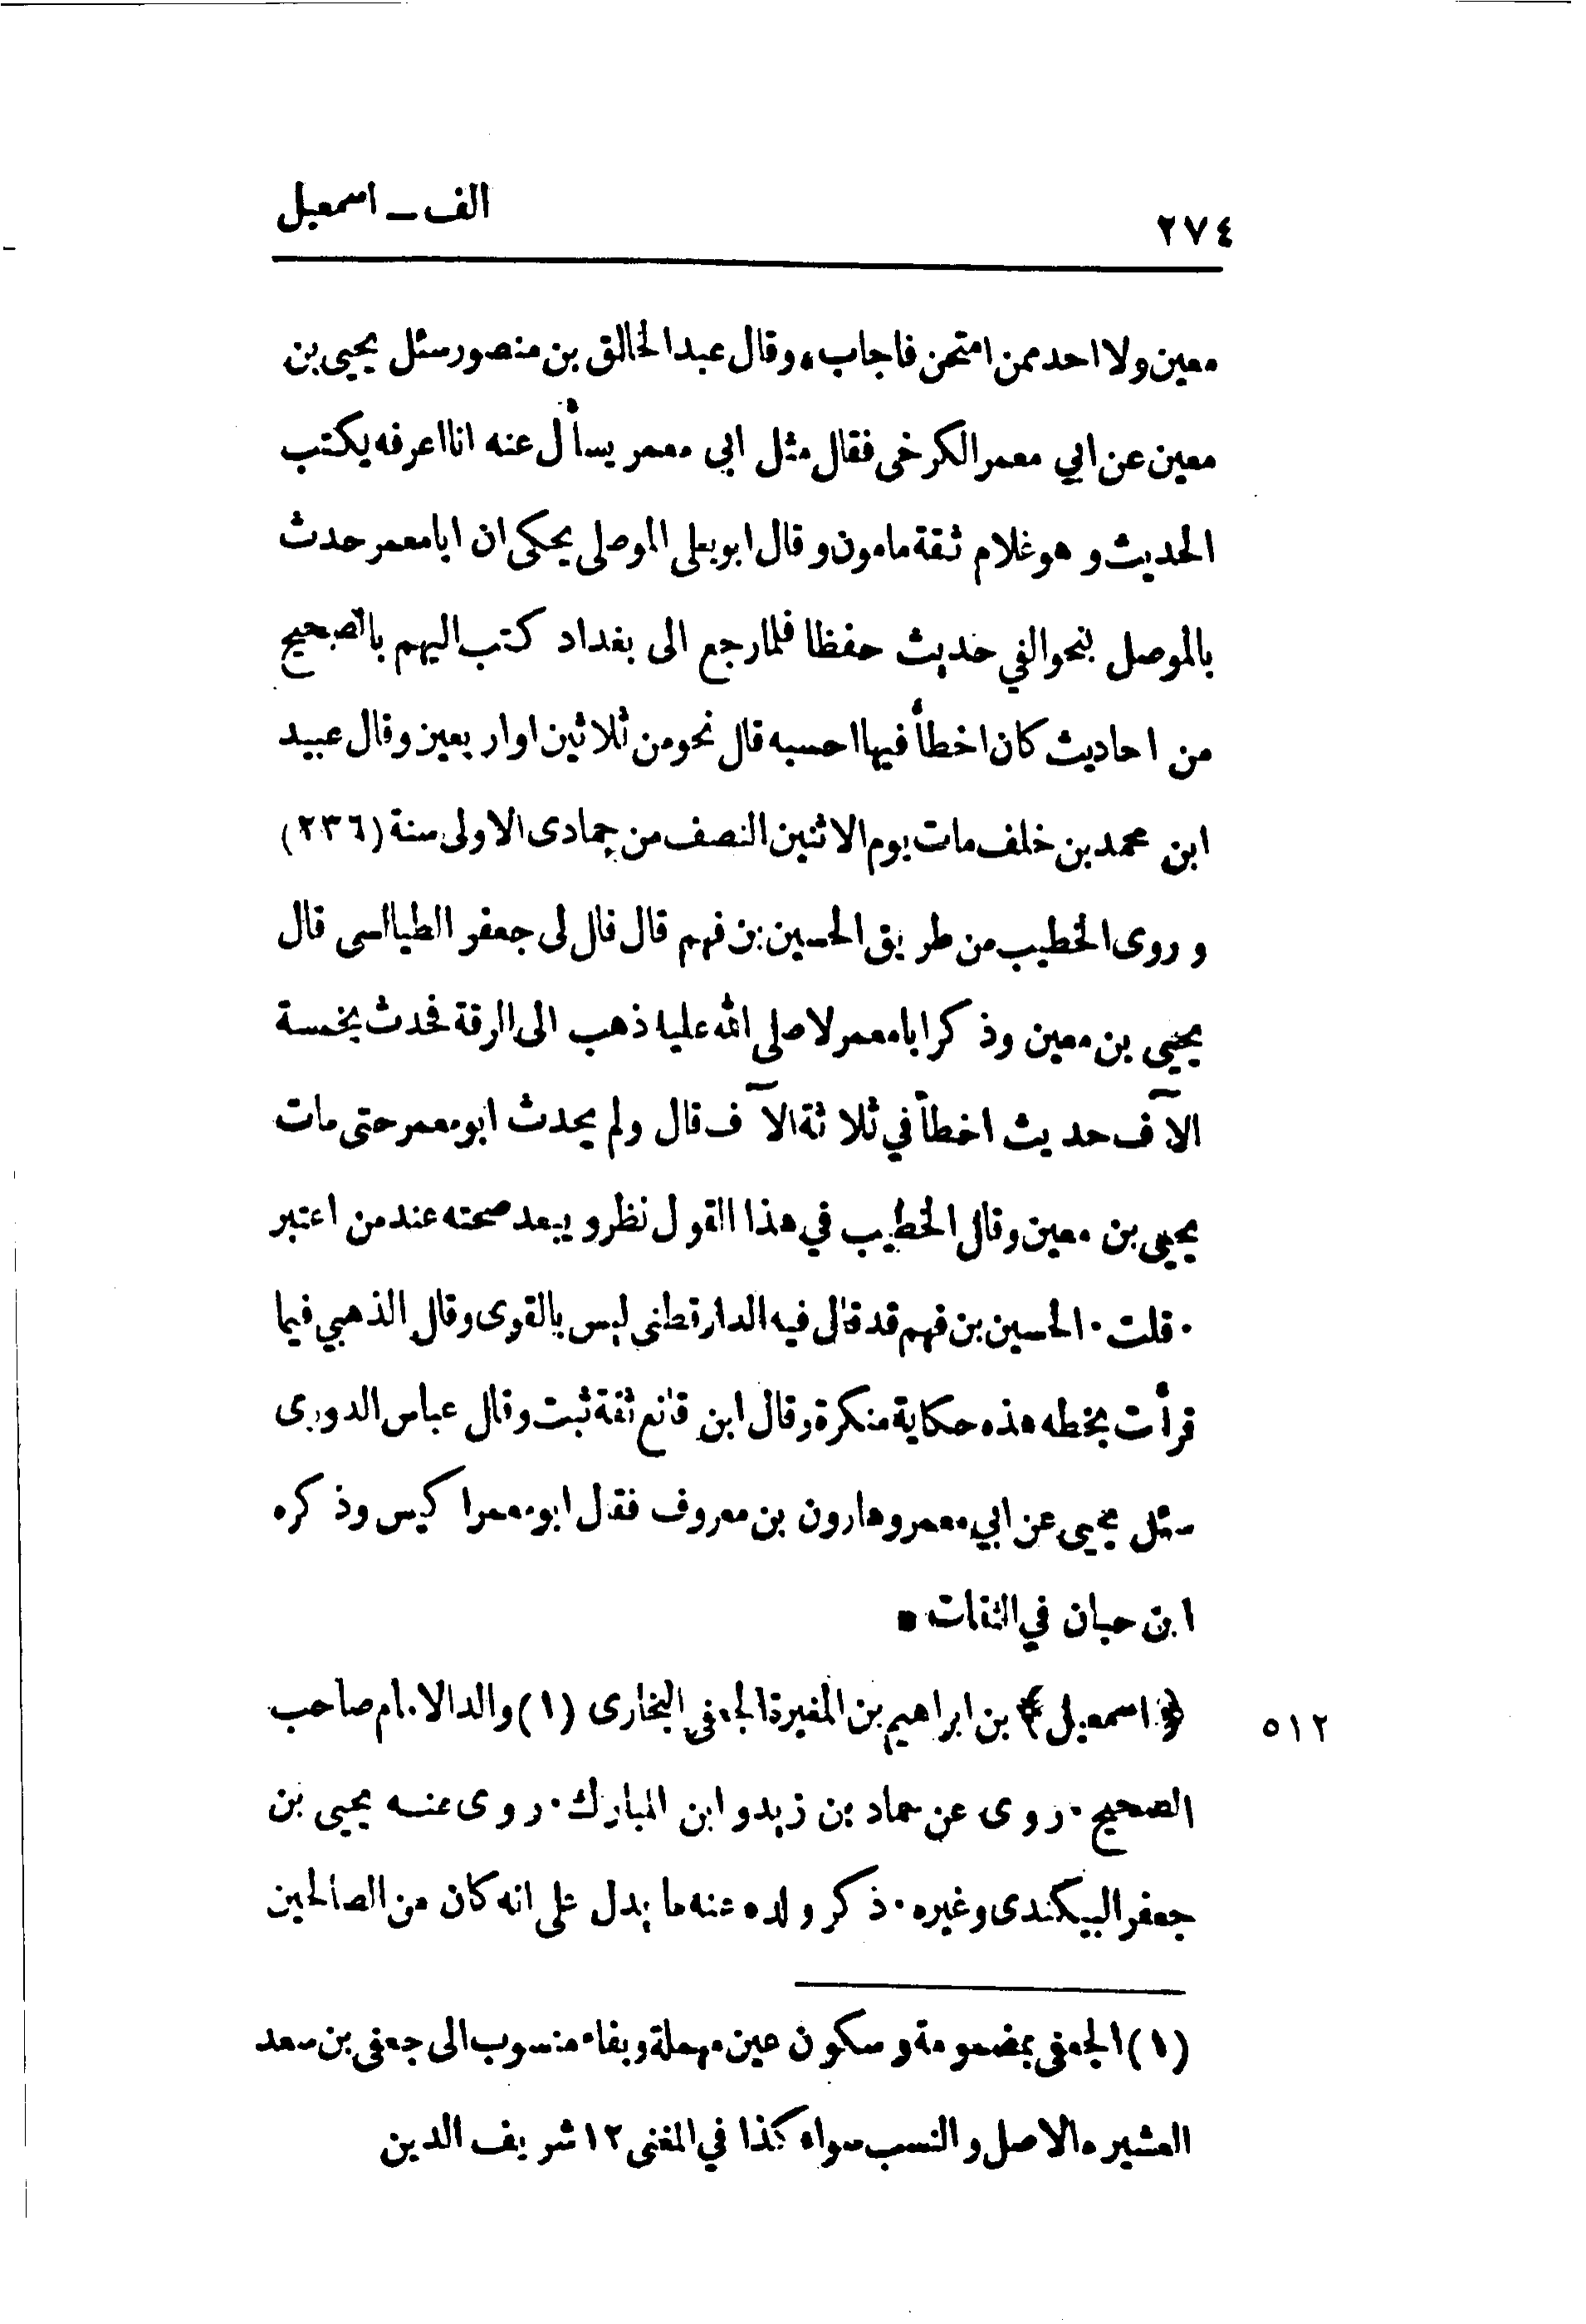 ٢٧٤
الف ــ اسمعيل
معين ولا احد ممن امتحن فاجاب * وقال عبد الخالق بن منصور سئل يحيى بن
معين عن ابي معمر الكرخى فقال مثل ابى معمر يسأل عنه انا اعرفه يكتب
الحديث وهو غلام ثقة مامون وقال ابو يعلى الموصلى يحكى ان ابا معمر حدث
بالموصل بنحو الفي حديث حفظا فلما رجع الى بغداد كتب اليهم بالصحيح
من احاديث كان اخطأ فيها احسبه قال نحو من ثلاثين او اربعين وقال عبيد
ابن محمد بن خلف مات يوم الاثنين النصف من جمادى الاولى سنة (٢٣٦)
وروى الخطيب من طريق الحسين بن فهم قال قال لى جعفر الطيالسى قال
يحيى بن معين وذكر ابا معمر لا صلى الله عليه ذهب الى الرقة فحدث بخمسة
الآف حديث اخطأ في ثلاثة الآف قال ولم يحدث ابو معمر حتى مات
يحيى بن معين وقال الخطيب في هذا القول نظر ويبعد صحته عند من اعتبر
٠ قلت ٠ الحسين بن فهم قد قال فيه الدارقطنى ليس بالقوى وقال الذهبي فيما
قرأت بخطه هذه حكاية منكرة وقال ابن قانع ثقة ثبت وقال عباس الدورى
سئل يحيى عن ابي معمر وهارون بن معروف فقال ابو معمر اكيس وذكره
ابن حبان في الثقات *
٥١٢ ﴿ اسمعيل ﴾ بن ابراهيم بن المغيرة الجعفى البخارى (١) والد الامام صاحب
الصحيح ٠ روى عن حماد بن زيد وابن المبارك ٠ روى عنه يحيى بن
جعفر البيكندى وغيره ٠ ذكر ولده عنه ما يدل على انه كان من الصالحين
(١) الجعفى بمضمومة وسكون عين مهملة وبفاء منسوب الى جعفى بن سعد
العشيره الاصل والنسب سواء كذا في المغنى ١٢ شريف الدين